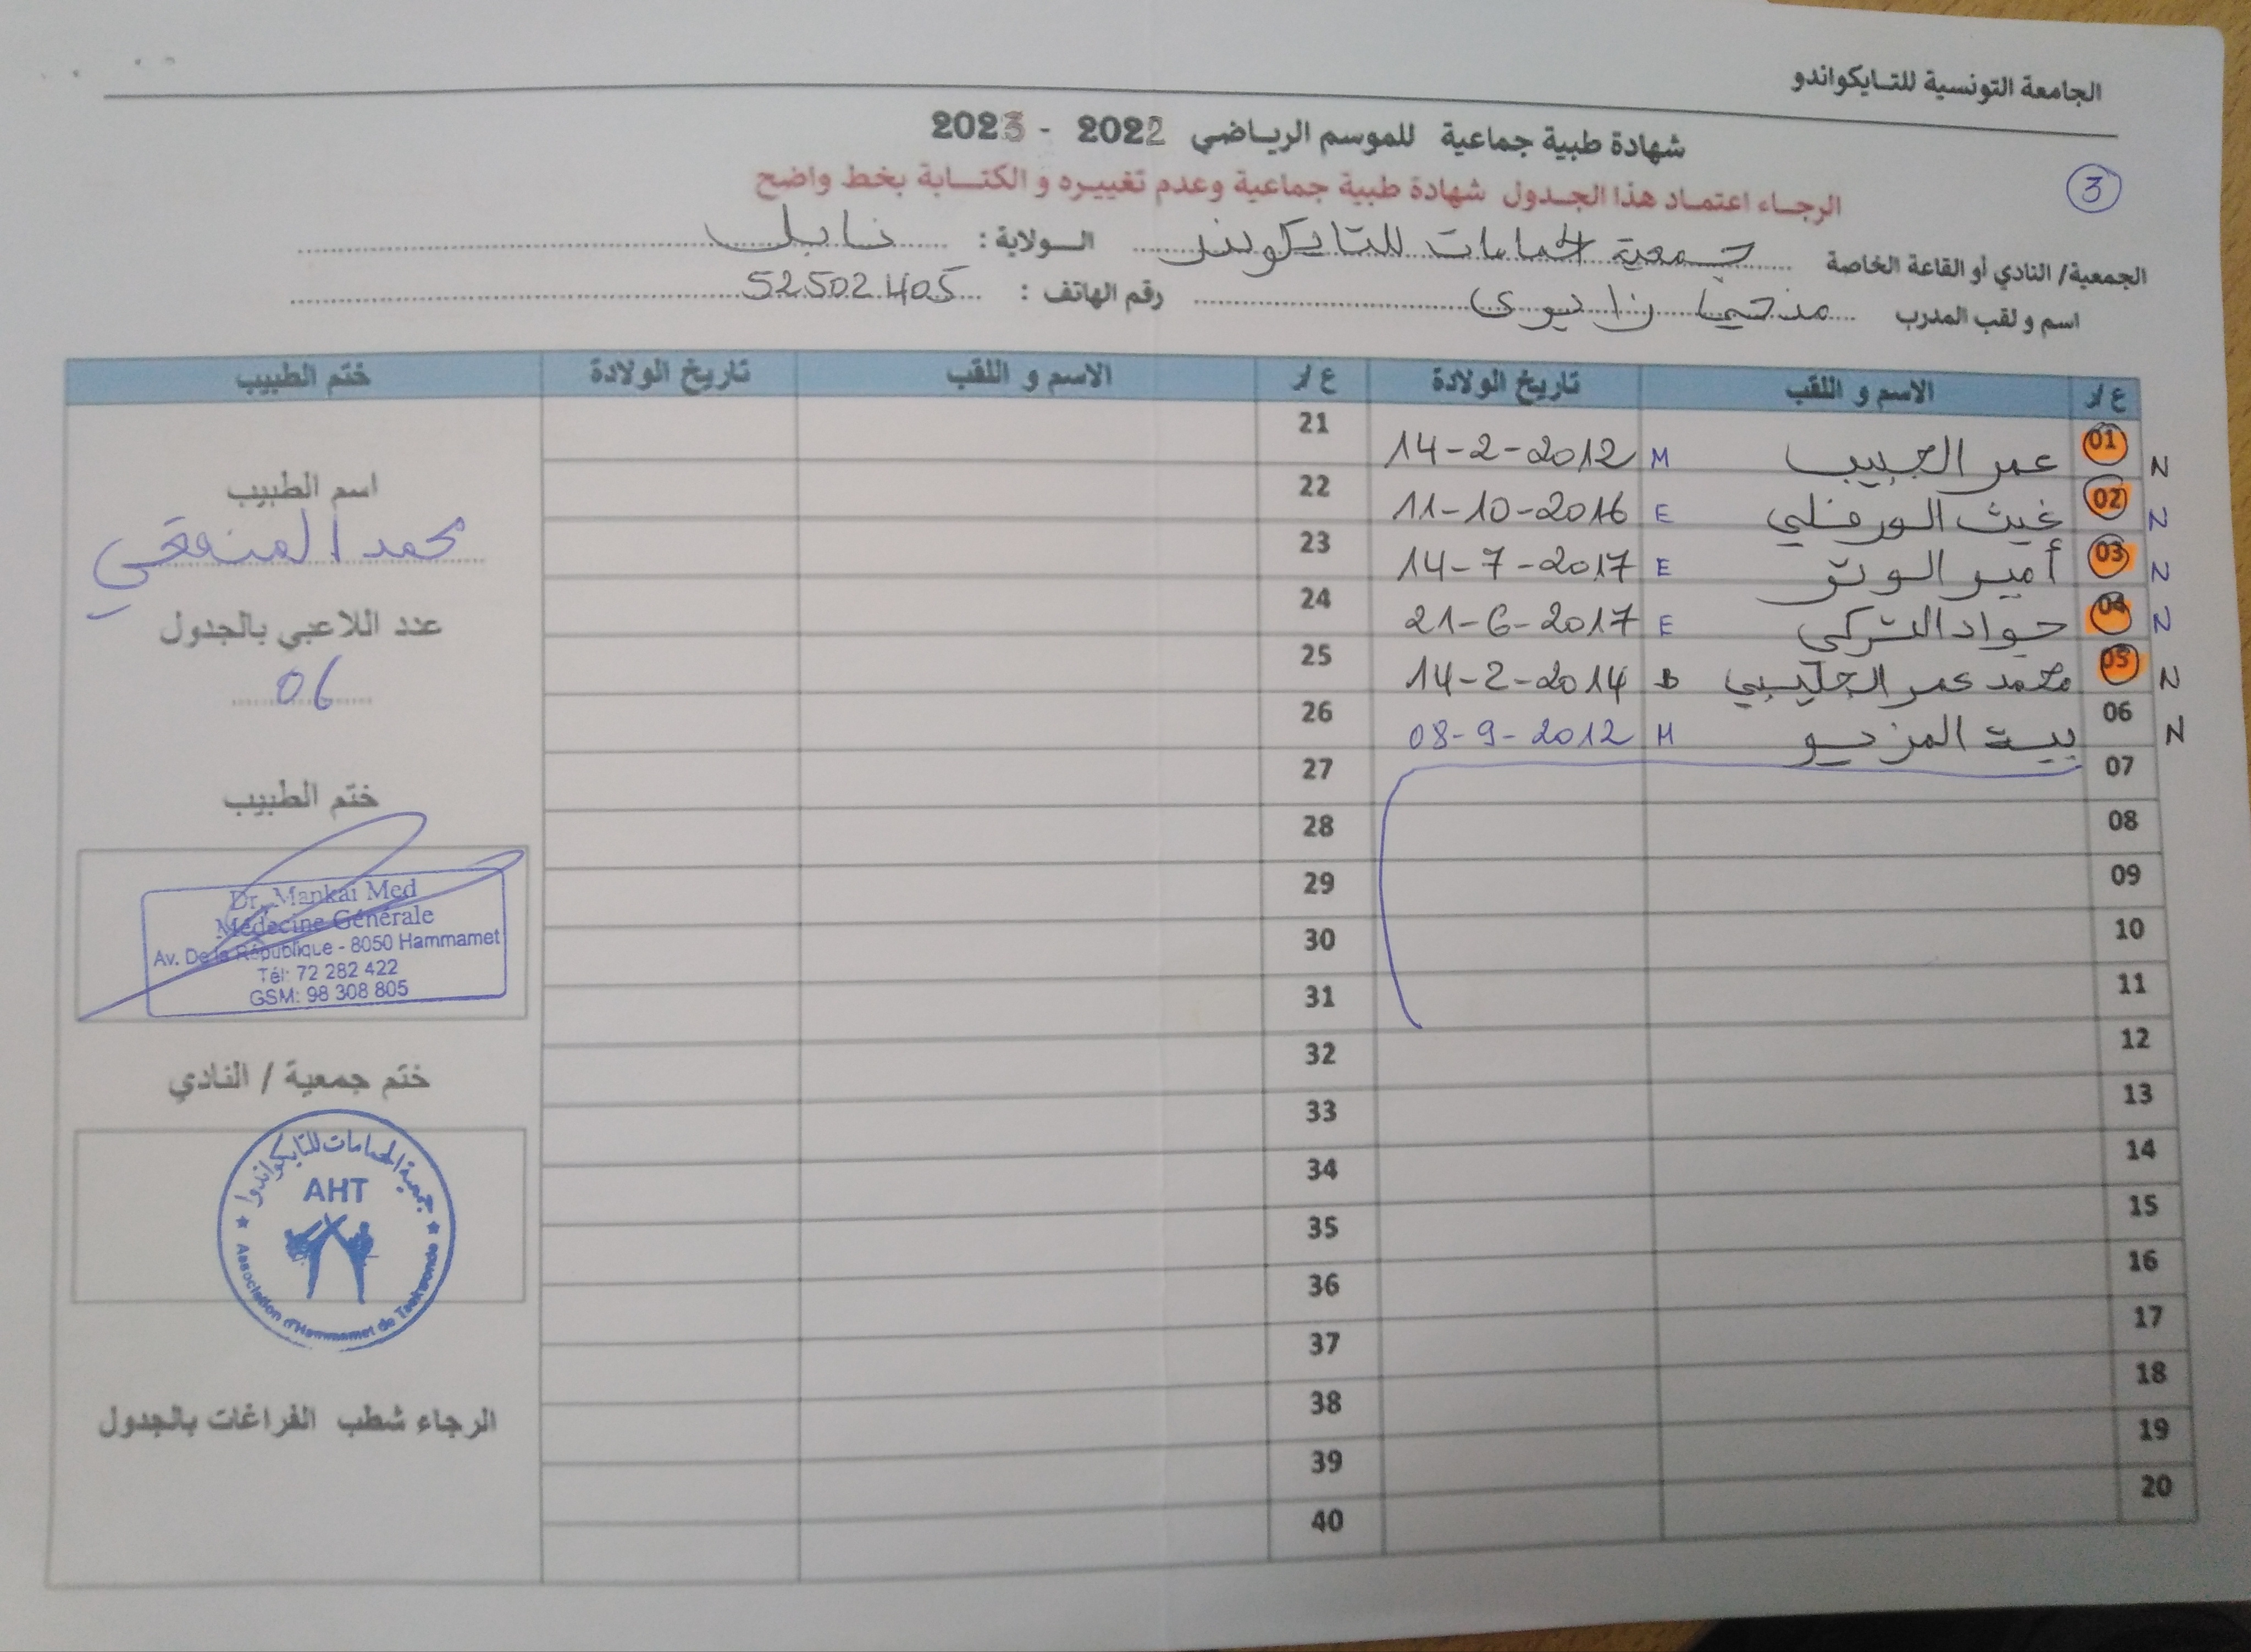 الجامعة التونسية للتايكواندو
شهادة طبية جماعية للموسم الرياضي 2022 - 2023
الرجاء اعتماد هذا الجدول شهادة طبية جماعية وعدم تغييره و الكتابة بخط واضح
3
الجمعية/ النادي أو القاعة الخاصة جمعية الحمامات للتايكوندو الولاية : نابل
اسم و لقب المدرب رقم الهاتف : 52502405
ع/ر الاسم و اللقب تاريخ الولادة ع/ر الاسم و اللقب تاريخ الولادة ختم الطبيب
N 01 عمر الحبيب M 14-2-2012 21
N 02 غيث الورفلي E 11-10-2016 22
N 03 أمير الوتر E 14-7-2017 23
N 04 جواد التركي E 21-6-2017 24
N 05 محمد عمر الجليبي B 14-2-2014 25
N 06 بيت المزيو M 08-9-2012 26
07 27
08 28
09 29
10 30
11 31
12 32
13 33
14 34
15 35
16 36
17 37
18 38
19 39
20 40
اسم الطبيب
محمد المنقعي
عدد اللاعبي بالجدول
06
ختم الطبيب
Dr. Mankai Med
Médecine Générale
Av. De la République - 8050 Hammamet
Tél: 72 282 422
GSM: 98 308 805
ختم جمعية / النادي
جمعية الحمامات للتايكواندوا
AHT
Association d'Hammamet de Taekwondo
الرجاء شطب الفراغات بالجدول